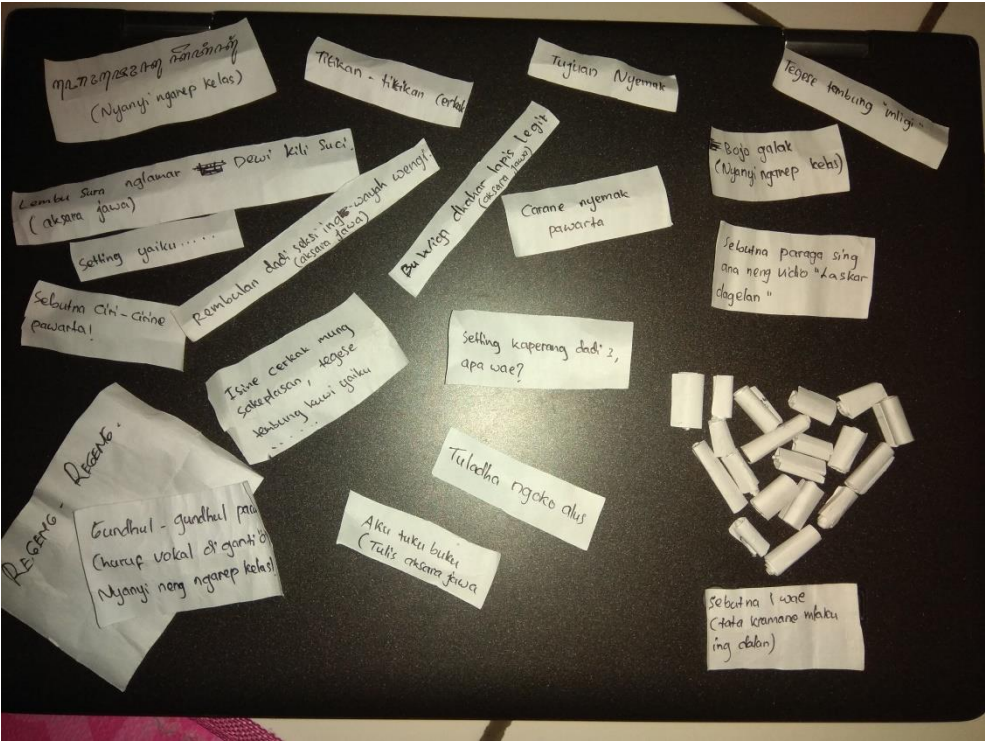 (Nyanyi ngarep kelas)
Titikan - titikan Cerkak
Tujuan Nyemak
Tegese tembung "mligi"
Lembu Sura nglamar Dewi Kili Suci.
(aksara jawa)
Setting yaiku.....
Rembulan dadi saksi ing wayah wengi.
(aksara jawa)
Bu Wien dhahar lapis legit
(aksara jawa)
Carane nyemak
pawarta
Bojo galak
(Nyanyi ngarep kelas)
Sebutna paraga sing
ana neng vidio "Laskar
dagelan"
Sebutna Ciri-Cirine
pawarta!
Isine cerkak mung
sakeplasan, tegese
tembung kuwi yaiku
......
Setting kaperang dadi 3,
apa wae?
Tuladha ngoko alus
Aku tuku buku
(Tulis aksara jawa
REGENG. REGENG.
Gundhul - gundhul pacu
(huruf vokal diganti O)
Nyanyi neng ngarep kelas)
Sebutna 1 wae
(tata kramane mlaku
ing dalan)